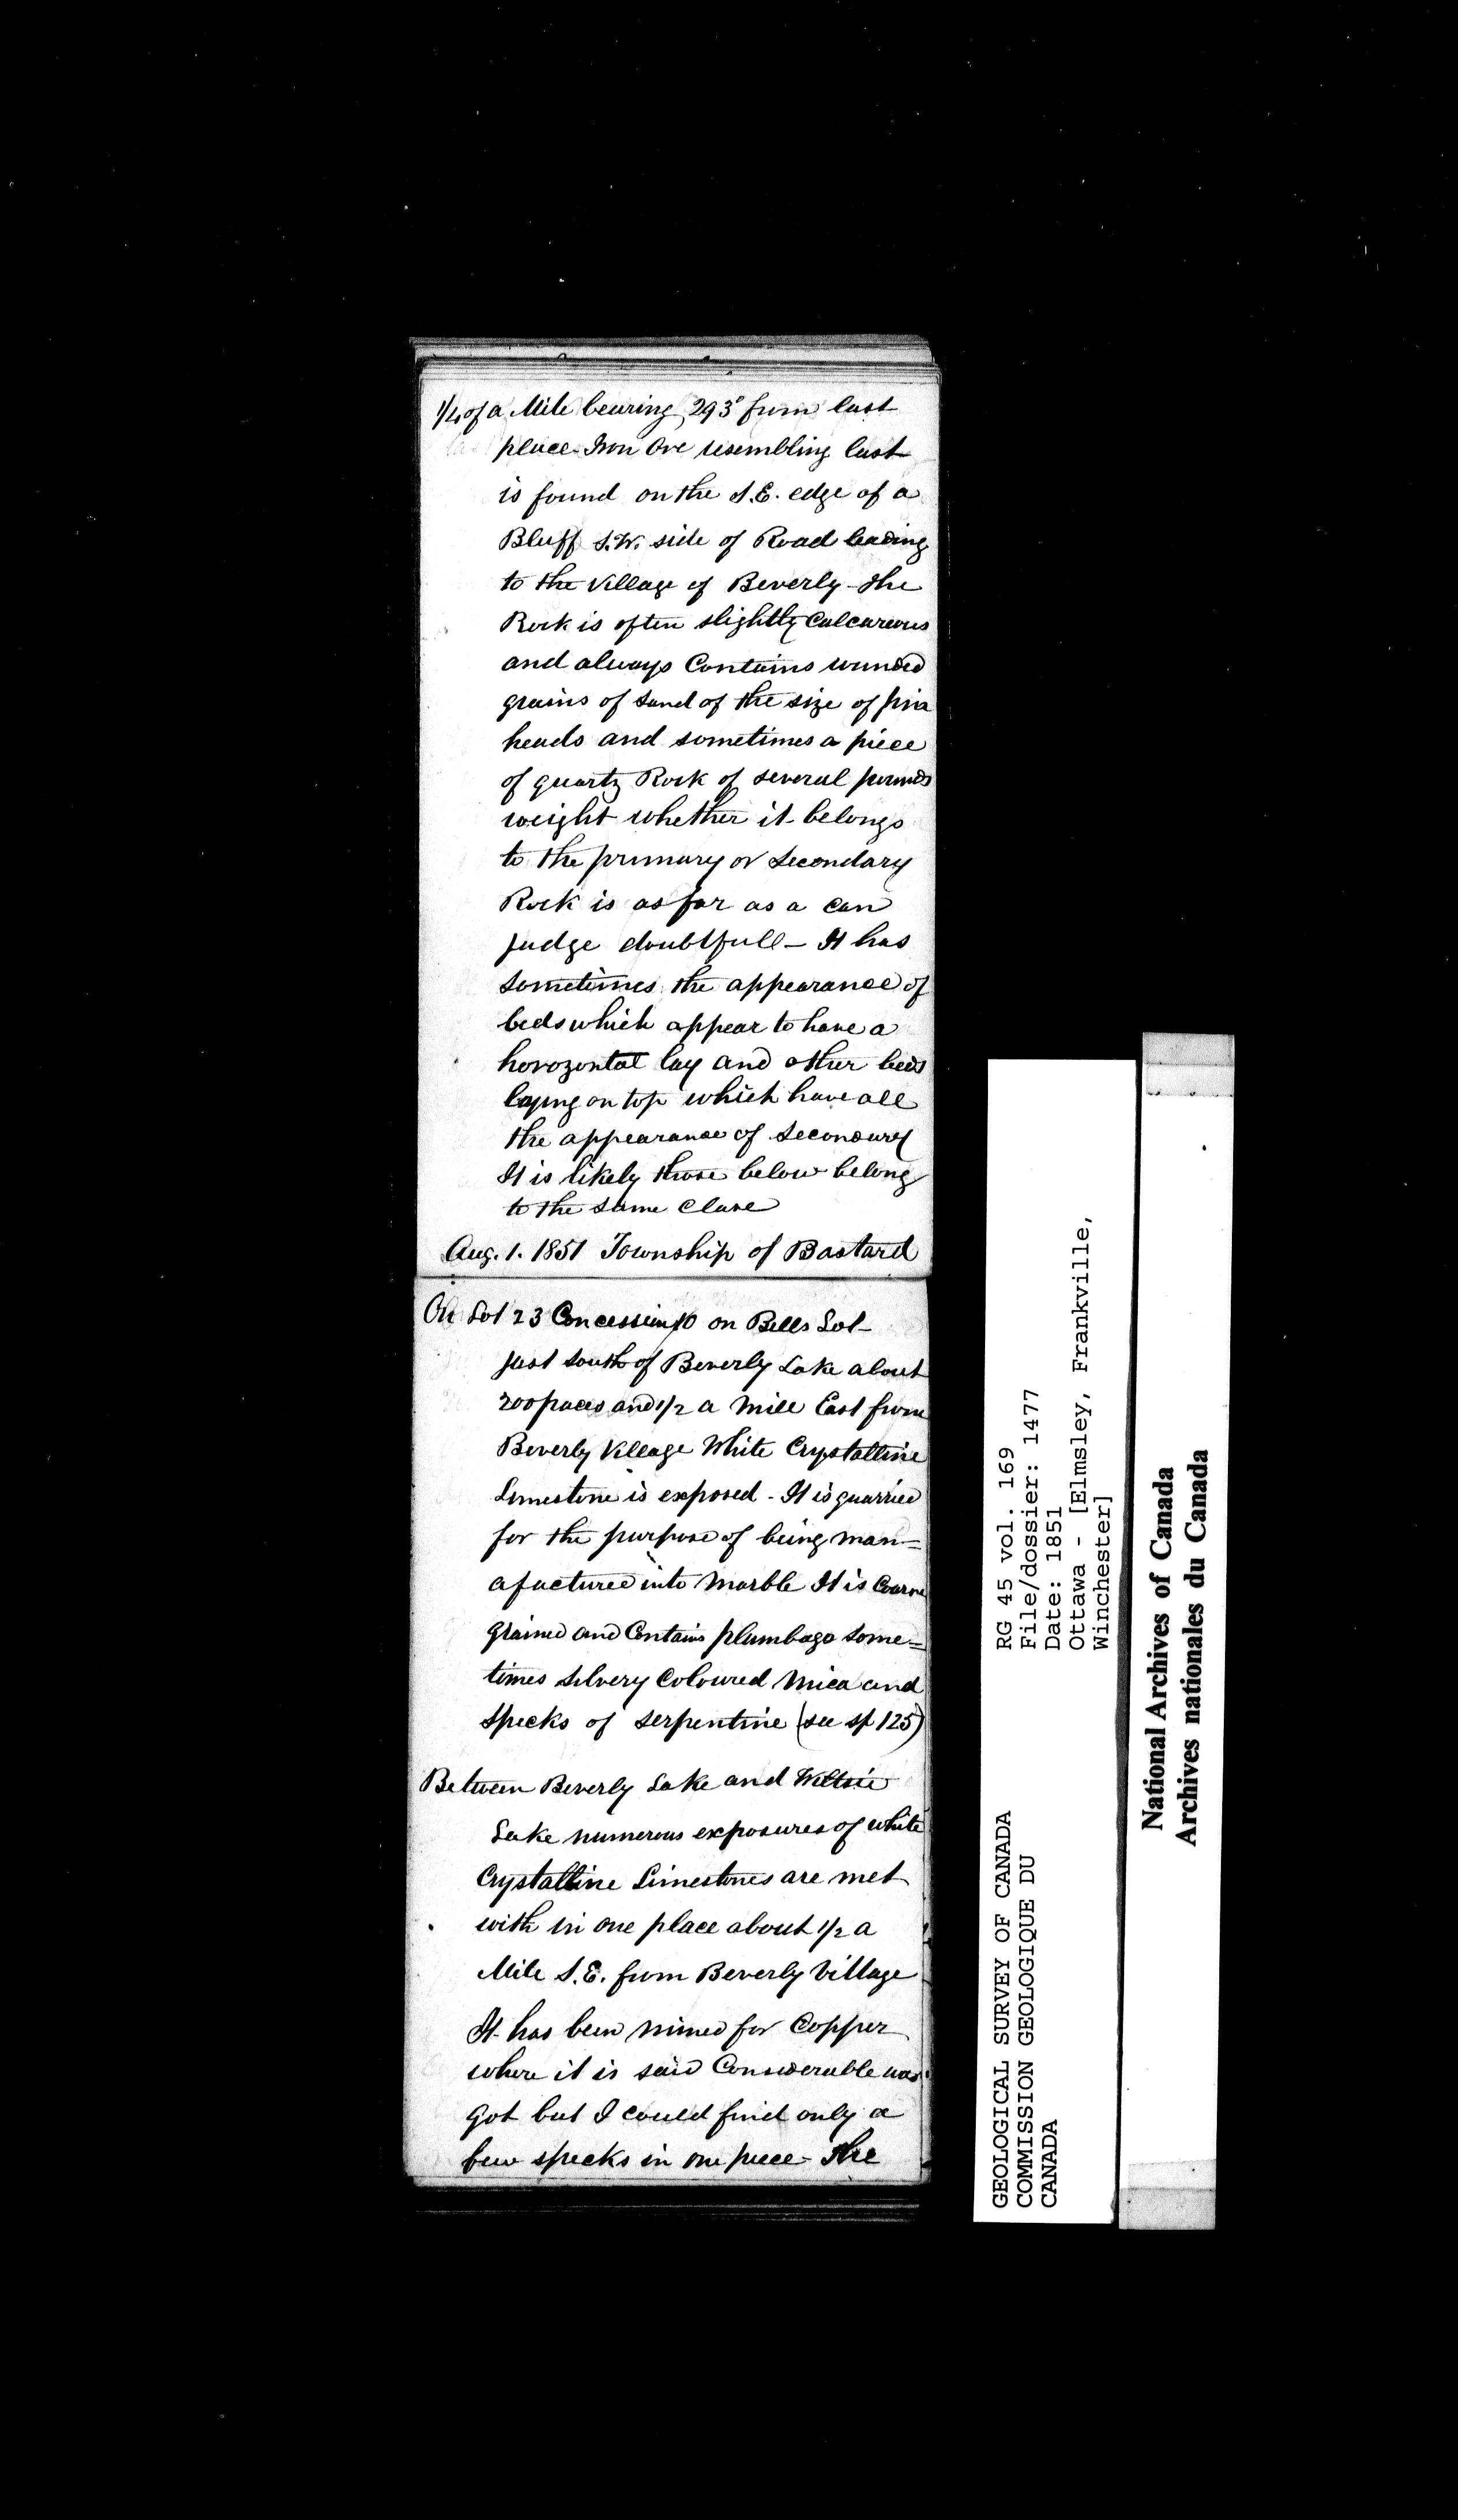 1/4 of a Mile bearing 293° from last
place - Iron Ore resembling last
is found on the S.E. edge of a
Bluff S.W. side of Road leading
to the Village of Beverly - the
Rock is often slightly Calcareous
and always Contains rounded
grains of sand of the size of pin
heads and sometimes a piece
of quartz Rock of several pounds
weight whether it belongs
to the primary or Secondary
Rock is as far as a can
judge doubtfull - It has
sometimes the appearance of
beds which appear to have a
horozontal lay and other beds
laying on top which have all
the appearance of Secondary
It is likely those below belong
to the same Clase
Aug. 1. 1851 Township of Bastard
On Lot 23 Concession 10 on Bells Lot -
just south of Beverly Lake about
200 paces and 1/2 a Mile East from
Beverly Village White Crystalline
Limestone is exposed - It is quarried
for the purpose of being man=
afactured into Marble It is Coarse
grained and Contains plumbago some=
times silvery Coloured Mica and
specks of serpentine (see sp 125)
Between Beverly Lake and Wiltsie
Lake numerous exposures of white
Crystalline Limestones are met
with in one place about 1/2 a
Mile S.E. from Beverly Village
It has been mined for Copper
where it is said Considerable was
got but I could find only a
few specks in one piece - the
GEOLOGICAL SURVEY OF CANADA
COMMISSION GEOLOGIQUE DU
CANADA
RG 45 vol. 169
File/dossier: 1477
Date: 1851
Ottawa - [Elmsley, Frankville,
Winchester]
National Archives of Canada
Archives nationales du Canada